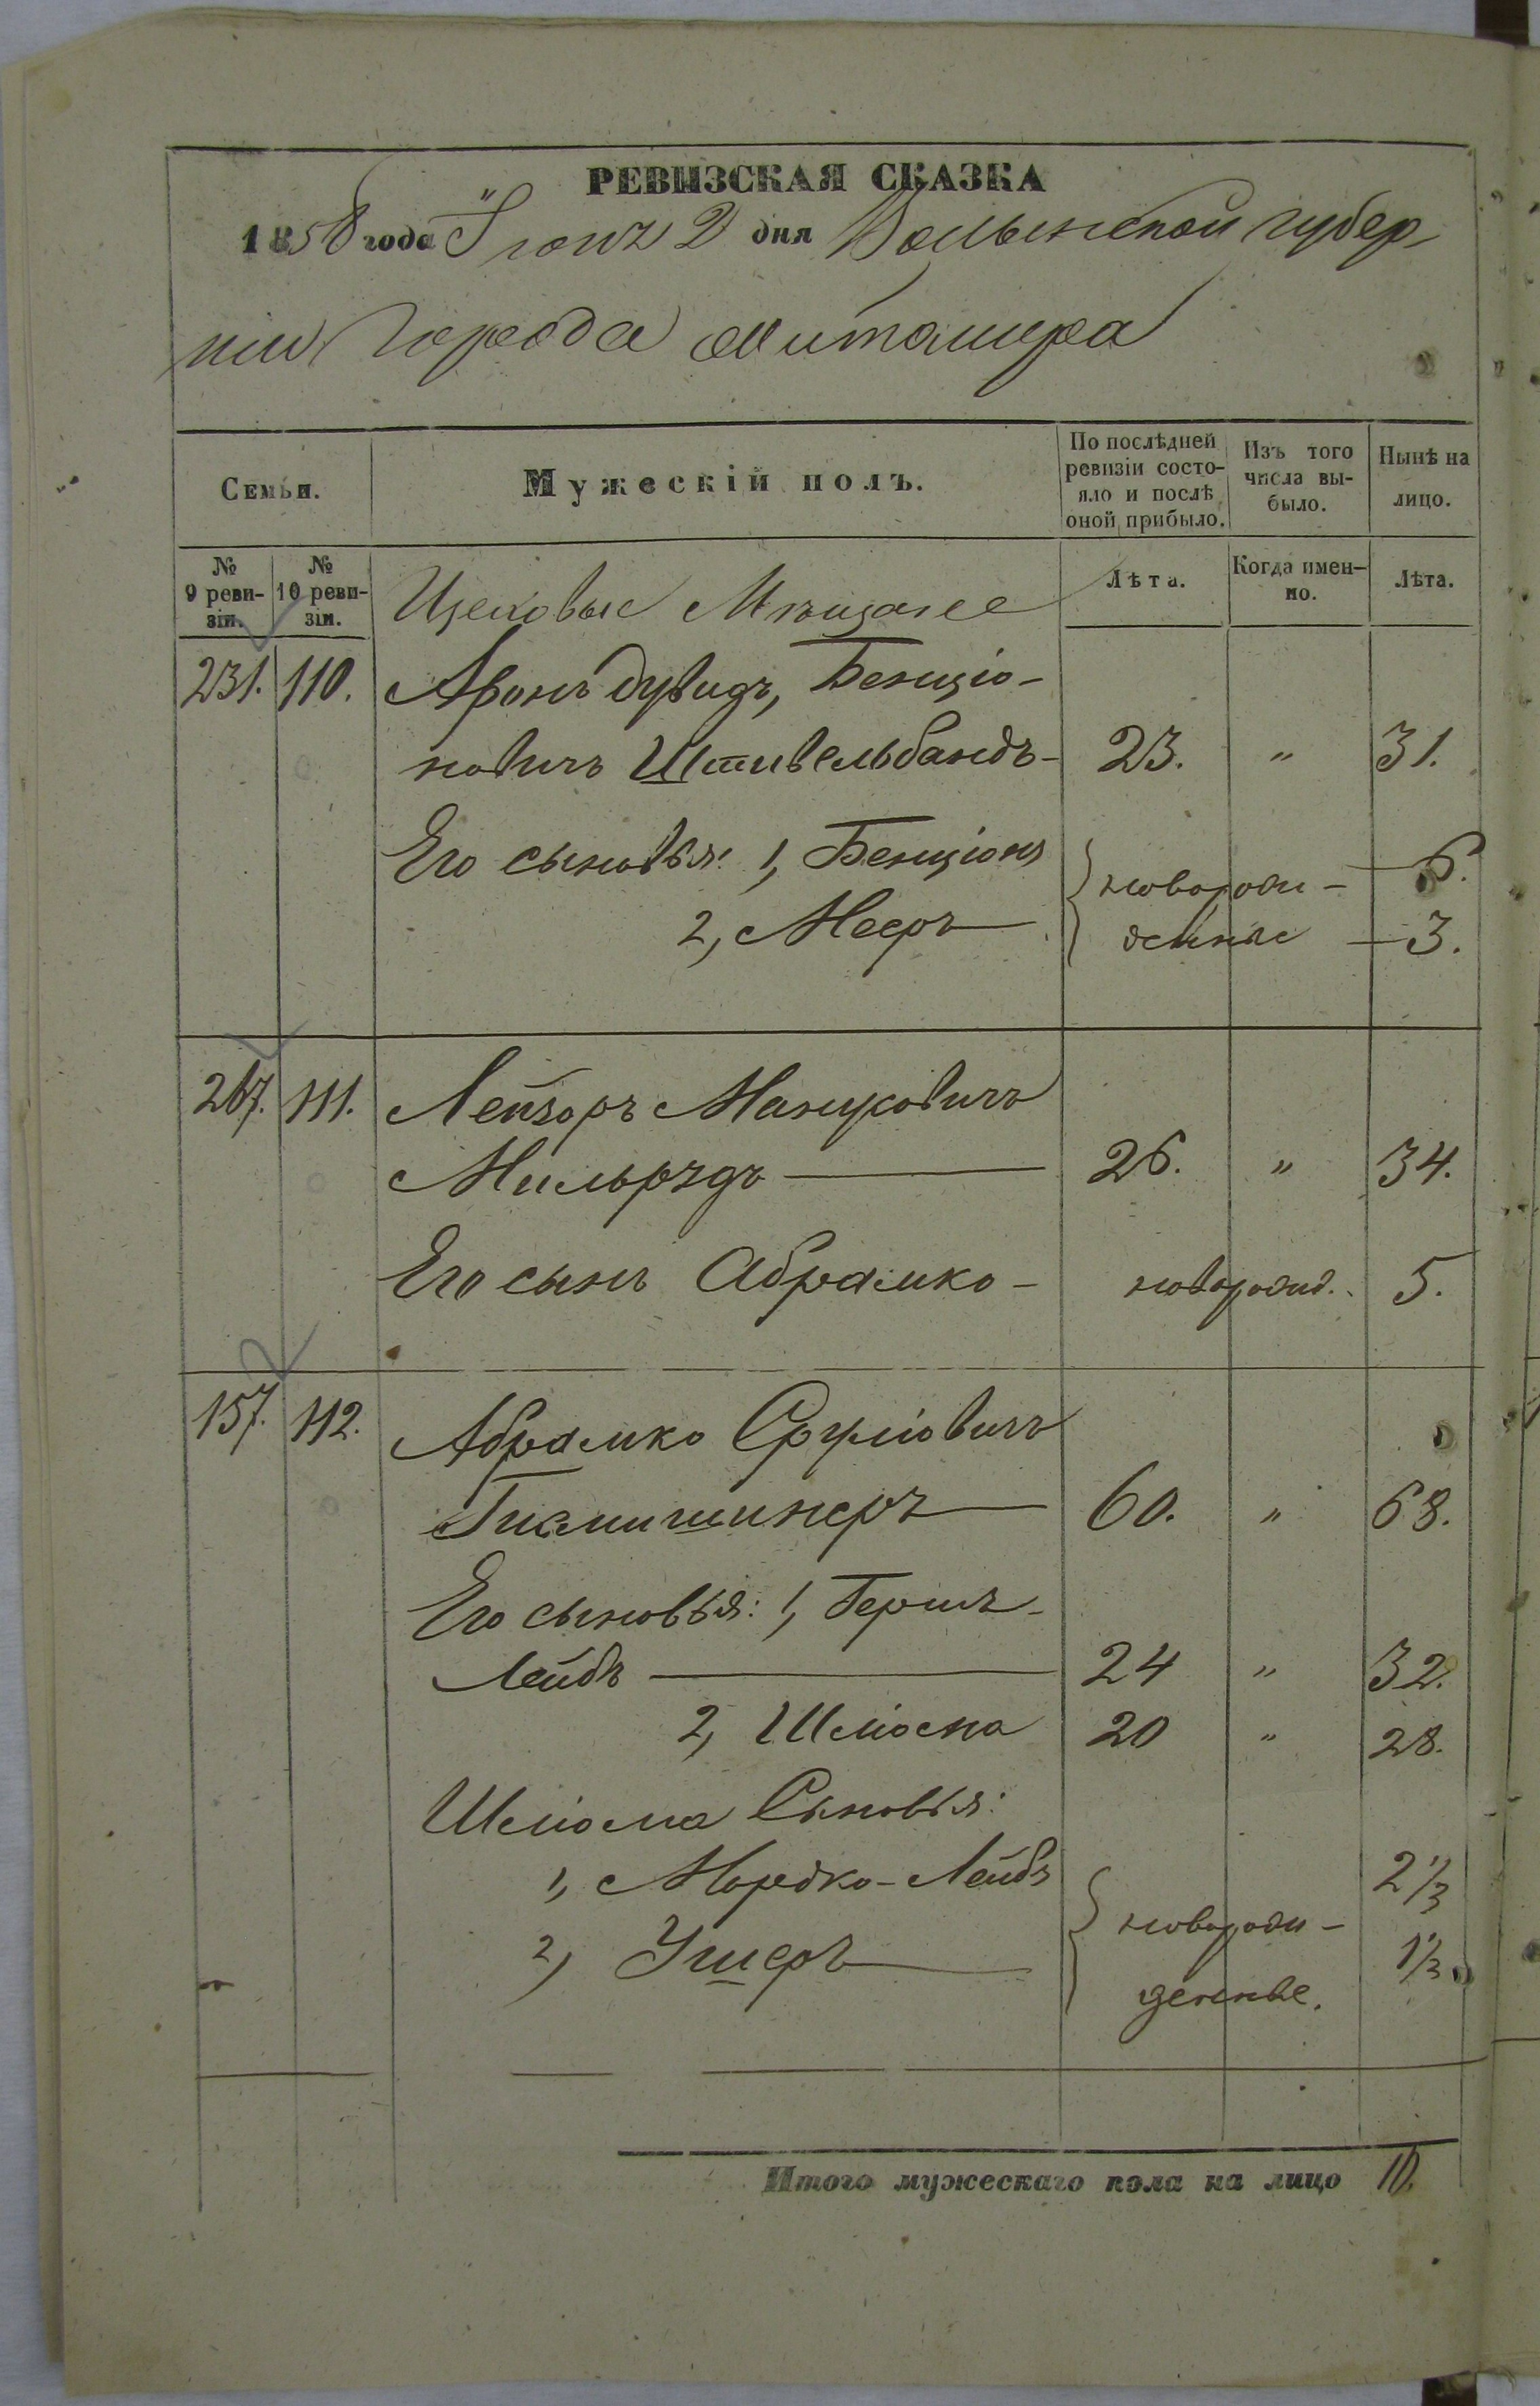 РЕВИЗСКАЯ СКАЗКА
1858 года Іюня 2 дня Волынской губер-
ніи Города Житомира
Семьи.
Мужескій полъ.
По послѣдней ревизіи состо-
яло и послѣ оной прибыло.
Изъ того числа вы-
было.
Нынѣ на лицо.
№ 9 реви-
зіи.
№ 10 реви-
зіи.
Цеховые Мѣщане
Лѣта.
Когда имен-
но.
Лѣта.
231. 110. Аронъ Дувидъ, Бенціо-
новичъ Штивельбандъ - 23. " 31.
Его сыновья: 1, Бенціонъ 6.
2, Мееръ 3.
новорож-
денные
267. 111. Лейзоръ Манусовичъ
Мильрудъ 26. " 34.
Его сынъ Абрамко - новорожд. 5.
157. 112. Абрамко Сруліовичъ
60. " 68.
Его сыновья: 1, Гершъ-
Лейбъ 24 " 32.
2, Шліома 20 " 28.
Шліома Сыновья:
1, Мордко-Лейбъ 2 1/3
2, Ушеръ 1 1/3
новорож-
денные.
Итого мужескаго пола на лицо 10.